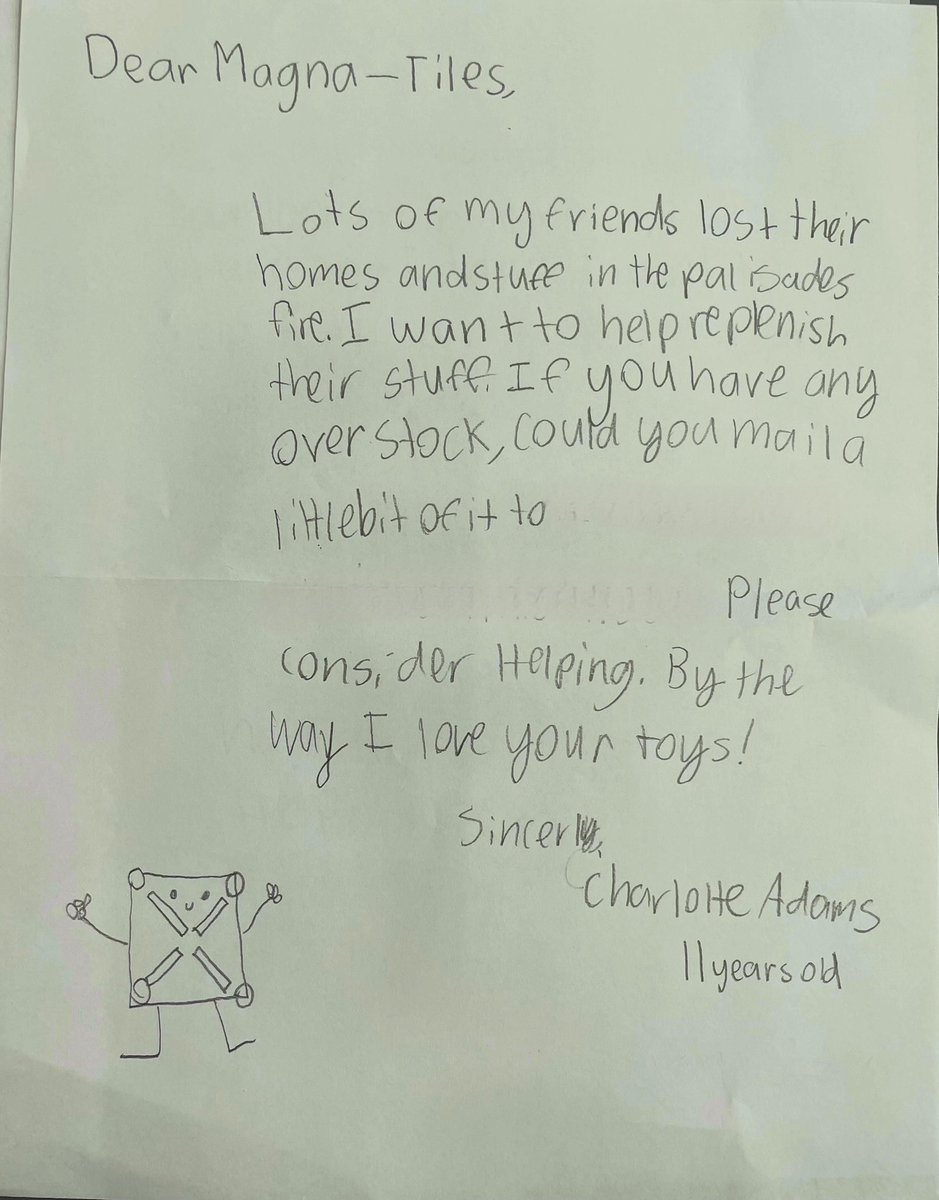 Dear Magna-Tiles,
Lots of my friends lost their
homes and stuff in the palisades
fire. I want to help replenish
their stuff. If you have any
over stock, could you mail a
little bit of it to
Please
consider Helping. By the
way I love your toys!
Sincerly,
Charlotte Adams
11 years old